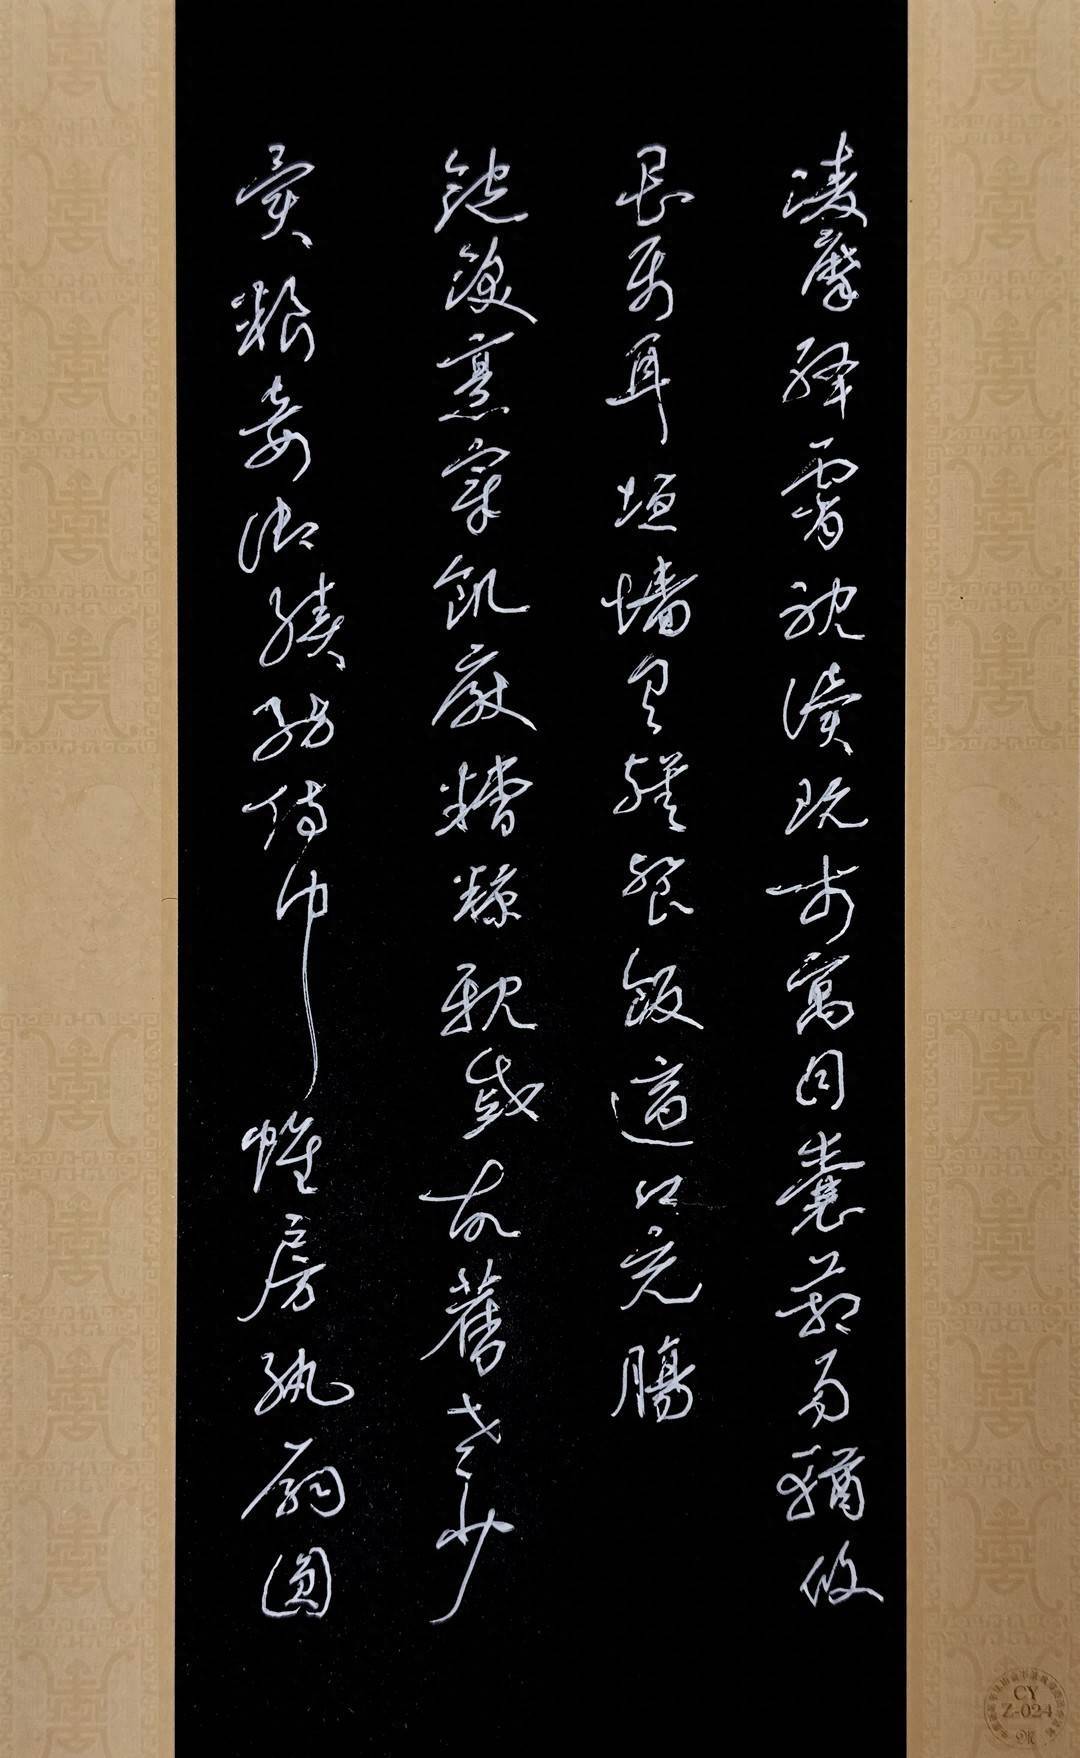 凌摩絳霄耽讀玩市寓目囊箱易輶攸
畏屬耳垣墻具膳餐飯適口充腸
飽飫烹宰飢厭糟糠親戚故舊老少
異糧妾御績紡侍巾帷房紈扇圓
CY
Z-024